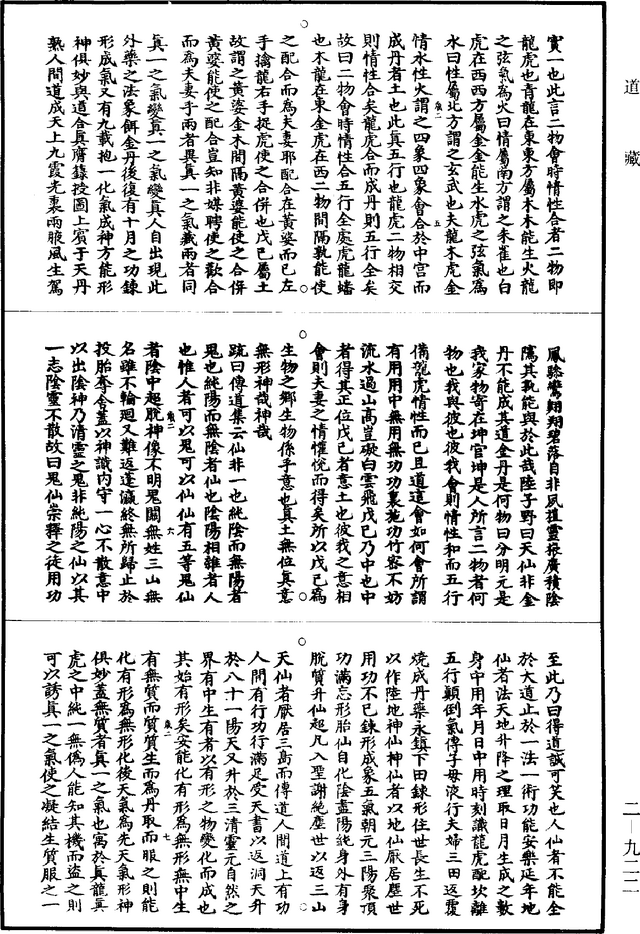 道藏
實一也此言二物會時情性合者二物即
龍虎也青龍在東東方屬木木能生火龍
之弦氣為火曰情屬南方謂之朱雀也白
虎在西西方屬金金能生水虎之弦氣為
水曰性屬北方謂之玄武也夫龍木虎金
情水性火謂之四象四象會合於中宮而
成丹者土也此真五行也龍虎二物相交
則情性合矣龍虎合而成丹則五行全矣
故曰二物會時情性合五行全處虎龍蟠
也木龍在東金虎在西二物間隔孰能使
之配合而為夫妻耶配合在黃婆而已左
手擒龍右手捉虎使之合併也戊己屬土
故謂之黃婆金木間隔黃婆能使之合併
黃婆能使之配合豈知非媒聘使之歡合
而為夫妻乎兩者異真一之氣藏兩者同
真一之氣變真一之氣變真人自出現此
外藥之法象餌金丹後復有十月之功鍊
形成氣又有九載抱一化氣成神方能形
神俱妙與道合真膺籙授圖上賓于天丹
熟人間道成天上九霞光裏兩腋風生駕
鳳驂鸞翱翔碧落自非夙植靈根廣積陰
隲其孰能與於此哉陸子野曰天仙非金
丹不能成其道金丹是何物曰分明元是
我家物寄在坤宮坤是人所言二物者何
物也我與彼也彼我會則情性和而五行
備龍虎情性而已且道這會如何會所謂
有用用中無用無功功裏施功竹密不妨
流水過山高豈礙白雲飛戊己乃中也中
者得其正位戊己者意土也彼我之意相
會則夫妻之情懽悅而得矣所以戊己為
生物之鄉生物係乎意也真土無位真意
無形神哉神哉
疏曰傳道集云仙非一也純陰而無陽者
鬼也純陽而無陰者仙也陰陽相雜者人
也惟人者可以鬼可以仙仙有五等鬼仙
者陰中超脫神像不明鬼關無姓三山無
名雖不輪迴又難返蓬瀛終無所歸止於
投胎奪舍蓋以神識內守一心不散意中
以出陰神乃清靈之鬼非純陽之仙以其
一志陰靈不散故曰鬼仙崇釋之徒用功
至此乃曰得道誠可笑也人仙者不能全
於大道止於一法一術功能安樂延年地
仙者法天地升降之理取日月生成之數
身中用年月日中用時刻識龍虎配坎離
五行顛倒氣傳子母液行夫婦三田返覆
燒成丹藥永鎮下田鍊形住世長生不死
以作陸地神仙神仙者以地仙厭居塵世
用功不已鍊形成象五氣朝元三陽聚頂
功滿忘形胎仙自化陰盡陽純身外有身
脫質升仙超凡入聖謝絶塵世以返三山
天仙者厭居三島而傳道人間道上有功
人間有行功行滿足受天書以返洞天升
於八十一陽天又升於三清靈元自然之
界有中生有者以有形之物變化而成也
其始有形矣安能化有形為無形無中生
有無質而質質生而為丹取而服之則能
化有形為無形化後天氣為先天氣形神
俱妙蓋無質者真一之氣也寓於真龍真
虎之中純一無偽人能知其機而盜之則
可以誘真一之氣使之凝結生質服之一
二－九二二